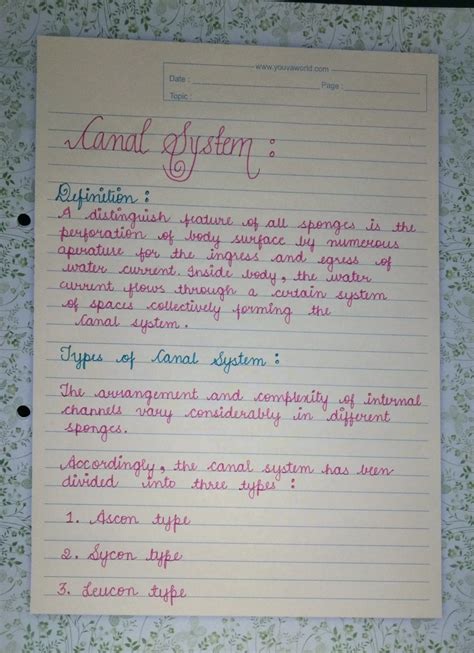 www.youvaworld.com
Date :
Page :
Topic :
Canal System :
Definition :
A distinguish feature of all sponges is the
perforation of body surface by numerous
aperature for the ingress and egress of
water current. Inside body, the water
current flows through a certain system
of spaces collectively forming the
Canal system.
Types of Canal System :
The arrangement and complexity of internal
channels vary considerably in different
sponges.
Accordingly, the canal system has been
divided into three types :
1. Ascon type
2. Sycon type
3. Leucon type